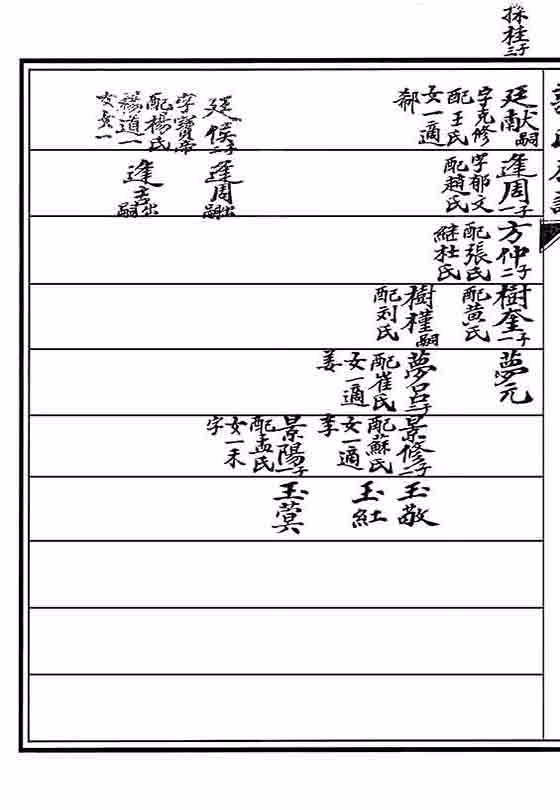 採桂三子
廷献嗣
字克修
配王氏
女一適
郝
廷侯二子
字寶帝
配楊氏
逢周一子
字郁文
配趙氏
逢周出嗣
逢吉出嗣
方仲二子
配張氏
継杜氏
樹奎一子
配黄氏
樹槿嗣
配刘氏
夢元
夢呂二子
配崔氏
女一適
姜
景修二子
配蘇氏
女一適
李
景陽一子
配孟氏
女一未
字
玉敬
玉紅
玉蓂